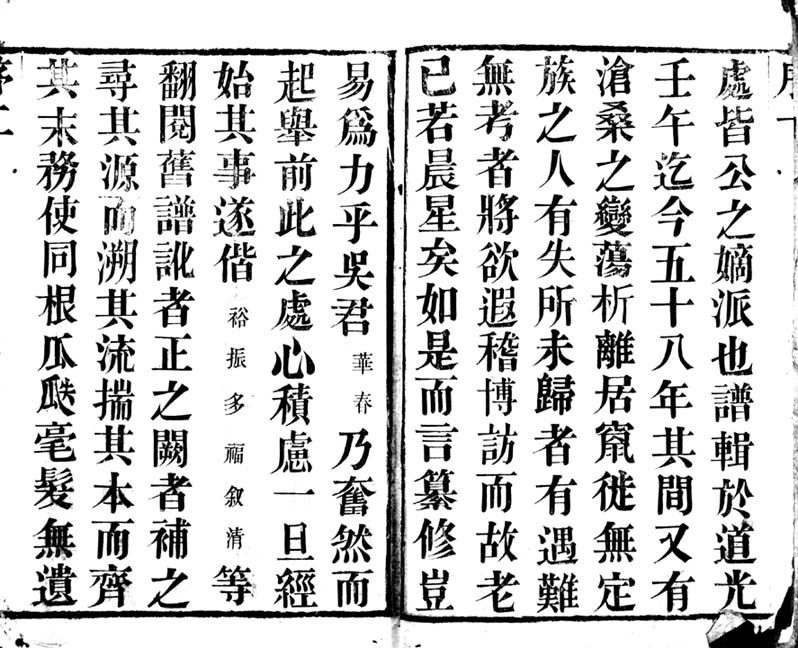 處皆公之嫡派也譜輯於道光
壬午迄今五十八年其間又有
滄桑之變蕩析離居竄徙無定
族之人有失所未歸者有遇難
無考者將欲遐稽博訪而故老
已若晨星矣如是而言纂修豈
易爲力乎吳君華春乃奮然而
起舉前此之處心積慮一旦經
始其事遂偕裕振多福叙清等
翻閱舊譜訛者正之闕者補之
尋其源而溯其流揣其本而齊
其末務使同根瓜瓞毫髮無遺